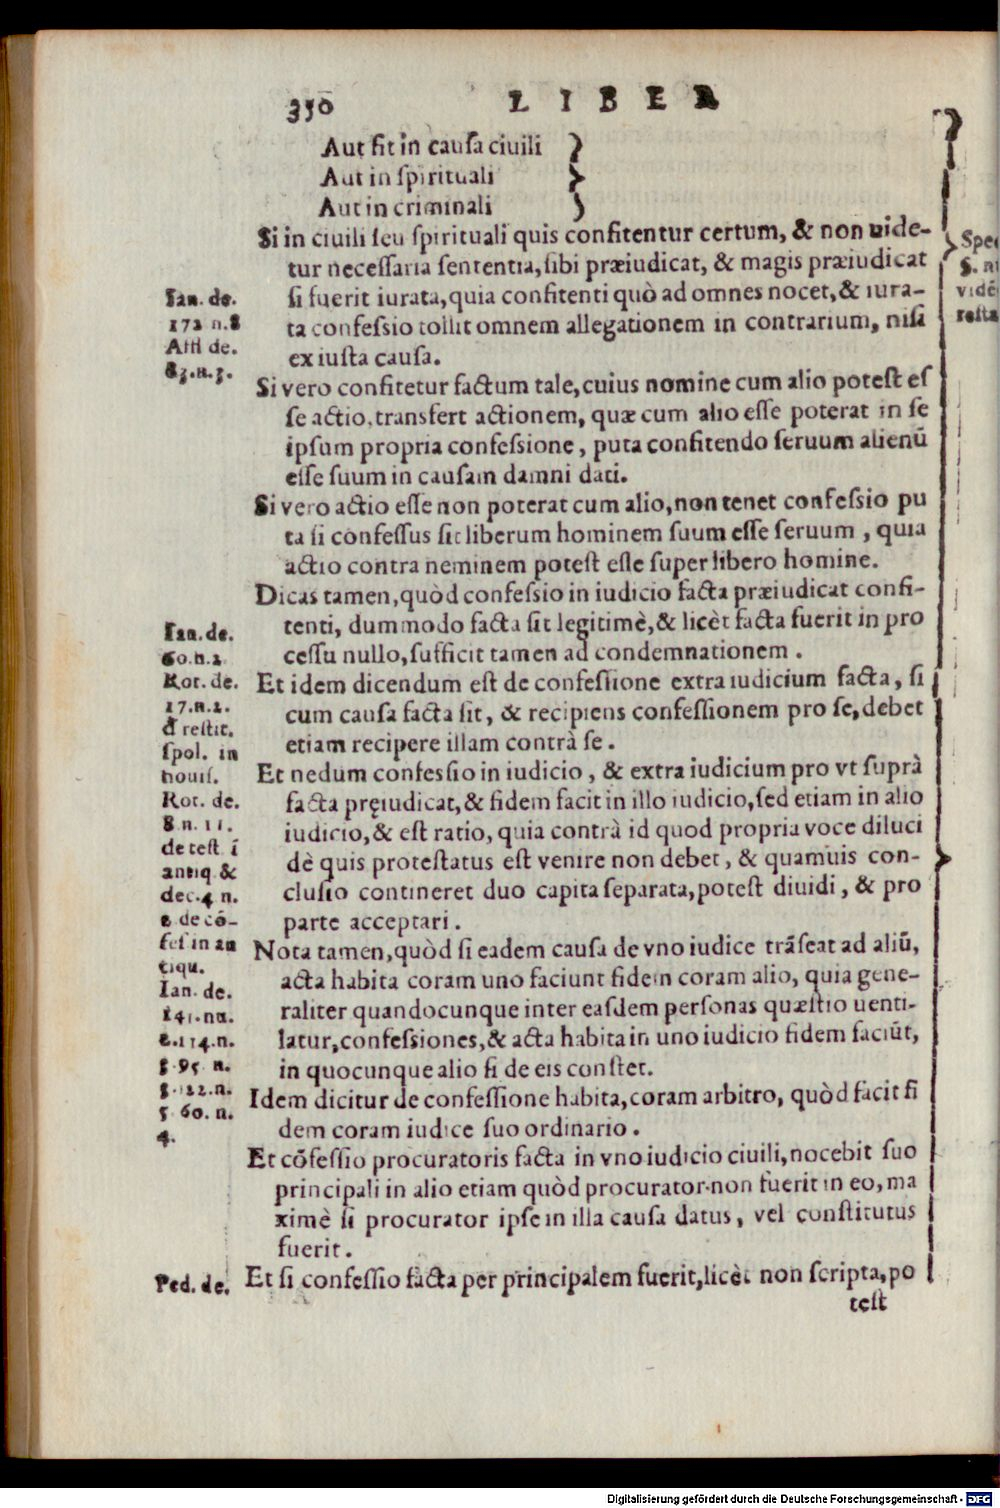 350 LIBER
Aut fit in causa ciuili
Aut in spirituali
Aut in criminali
Si in ciuili seu spirituali quis confitentur certum, & non uide-
tur necessaria sententia, sibi præiudicat, & magis præiudicat
si fuerit iurata, quia confitenti quò ad omnes nocet, & iura-
ta confessio tollit omnem allegationem in contrarium, nisi
ex iusta causa.
Si vero confitetur factum tale, cuius nomine cum alio potest es
se actio, transfert actionem, quæ cum alio esse poterat in se
ipsum propria confessione, puta confitendo seruum alienū
esse suum in causam damni dati.
Si vero actio esse non poterat cum alio, non tenet confessio pu
ta si confessus sit liberum hominem suum esse seruum, quia
actio contra neminem potest esse super libero homine.
Dicas tamen, quòd confessio in iudicio facta præiudicat confi-
tenti, dummodo facta sit legitimè, & licèt facta fuerit in pro
cessu nullo, sufficit tamen ad condemnationem.
Et idem dicendum est de confessione extra iudicium facta, si
cum causa facta sit, & recipiens confessionem pro se, debet
etiam recipere illam contrà se.
Et nedum confessio in iudicio, & extra iudicium pro vt suprà
facta pręiudicat, & fidem facit in illo iudicio, sed etiam in alio
iudicio, & est ratio, quia contrà id quod propria voce diluci
dè quis protestatus est venire non debet, & quamuis con-
clusio contineret duo capita separata, potest diuidi, & pro
parte acceptari.
Nota tamen, quòd si eadem causa de vno iudice trāseat ad aliū,
acta habita coram uno faciunt fidem coram alio, quia gene-
raliter quandocunque inter easdem personas quæstio uenti-
latur, confessiones, & acta habita in uno iudicio fidem faciūt,
in quocunque alio si de eis constet.
Idem dicitur de confessione habita, coram arbitro, quòd facit fi
dem coram iudice suo ordinario.
Et cōfessio procuratoris facta in vno iudicio ciuili, nocebit suo
principali in alio etiam quòd procurator non fuerit in eo, ma
ximè si procurator ipse in illa causa datus, vel constitutus
fuerit.
Et si confessio facta per principalem fuerit, licèt non scripta, po
test
Ian. de.
172 n.8
Atti de.
83.n.3.
Ian. de.
60.n.2
Rot. de.
17.n.2.
đ restit.
spol. in
nouis.
Rot. de.
8 n. 11.
de test ī
antiq &
dec. 4 n.
2 de cō-
fes in an
tiqu.
Ian. de.
141. nu.
2. 114. n.
5. 95 n.
5. 122. n.
5 60. n.
4.
Ped. de.
Spec
§. nu
vidē
resta
Digitalisierung gefördert durch die Deutsche Forschungsgemeinschaft - DFG